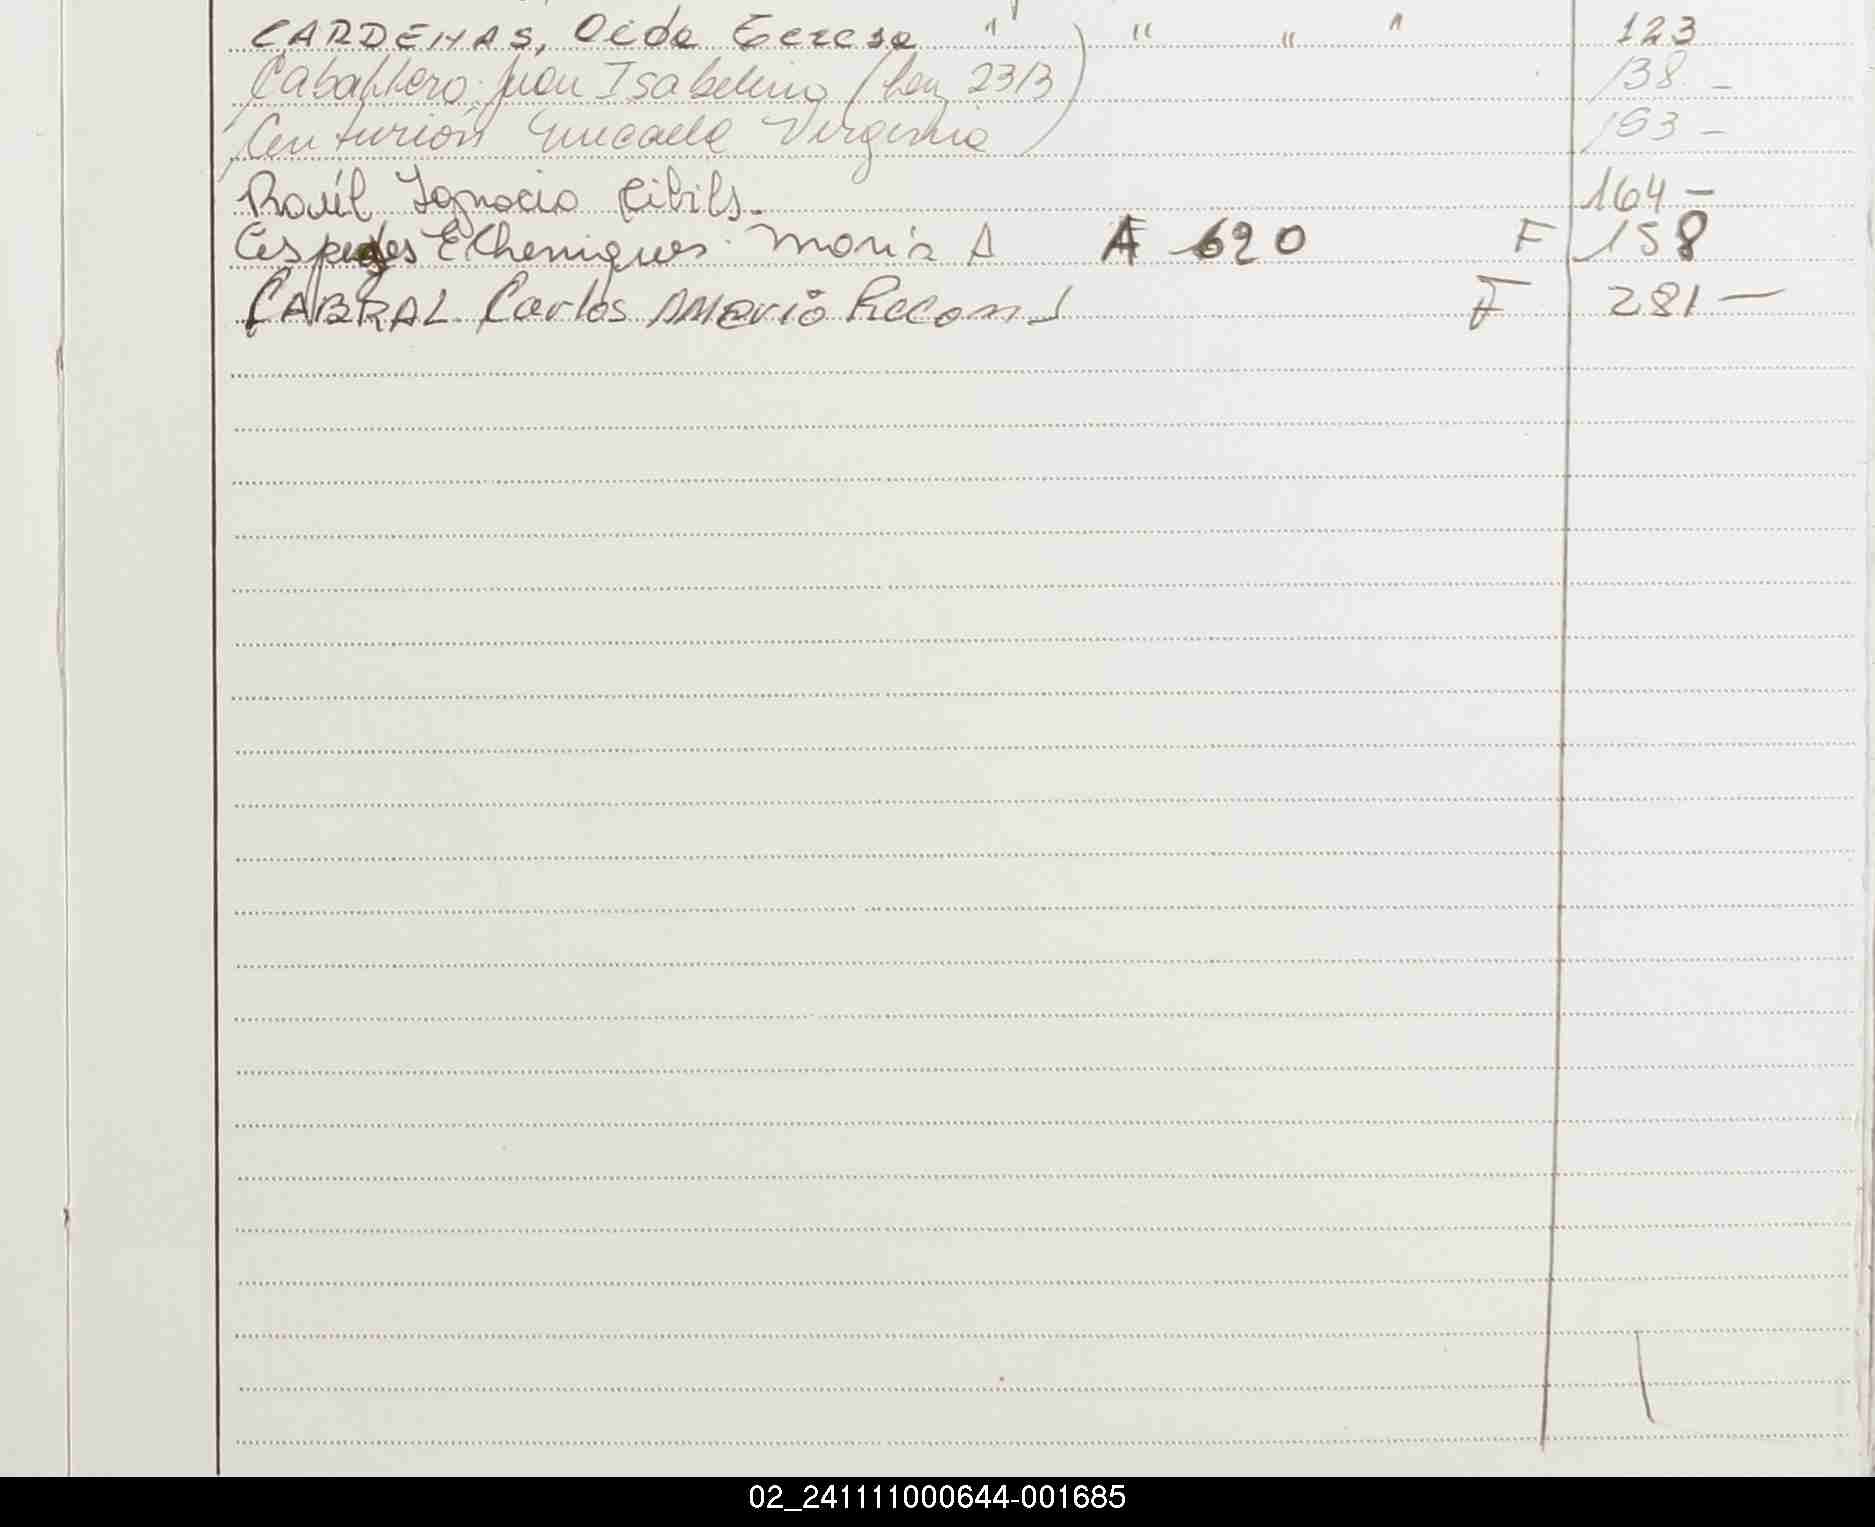 CARDENAS, Oida Teresa " " " " 123
Caballero Juan Isabelino (Ley 23/3) 138. -
Centurión Micaela Virginia 153 -
Raúl Ignacio Cibils. 164 -
Cespedes Echeniques. Maria A A 620 F 158
CABRAL Carlos AMerio Recons F 281 -
02_241111000644-001685